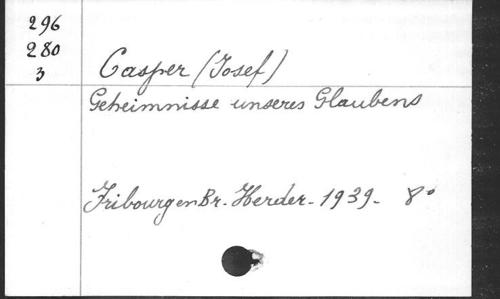 296
280
3
Casper (Josef)
Geheimnisse unseres Glaubens
Fribourg en Br. - Herder - 1939 - 8°